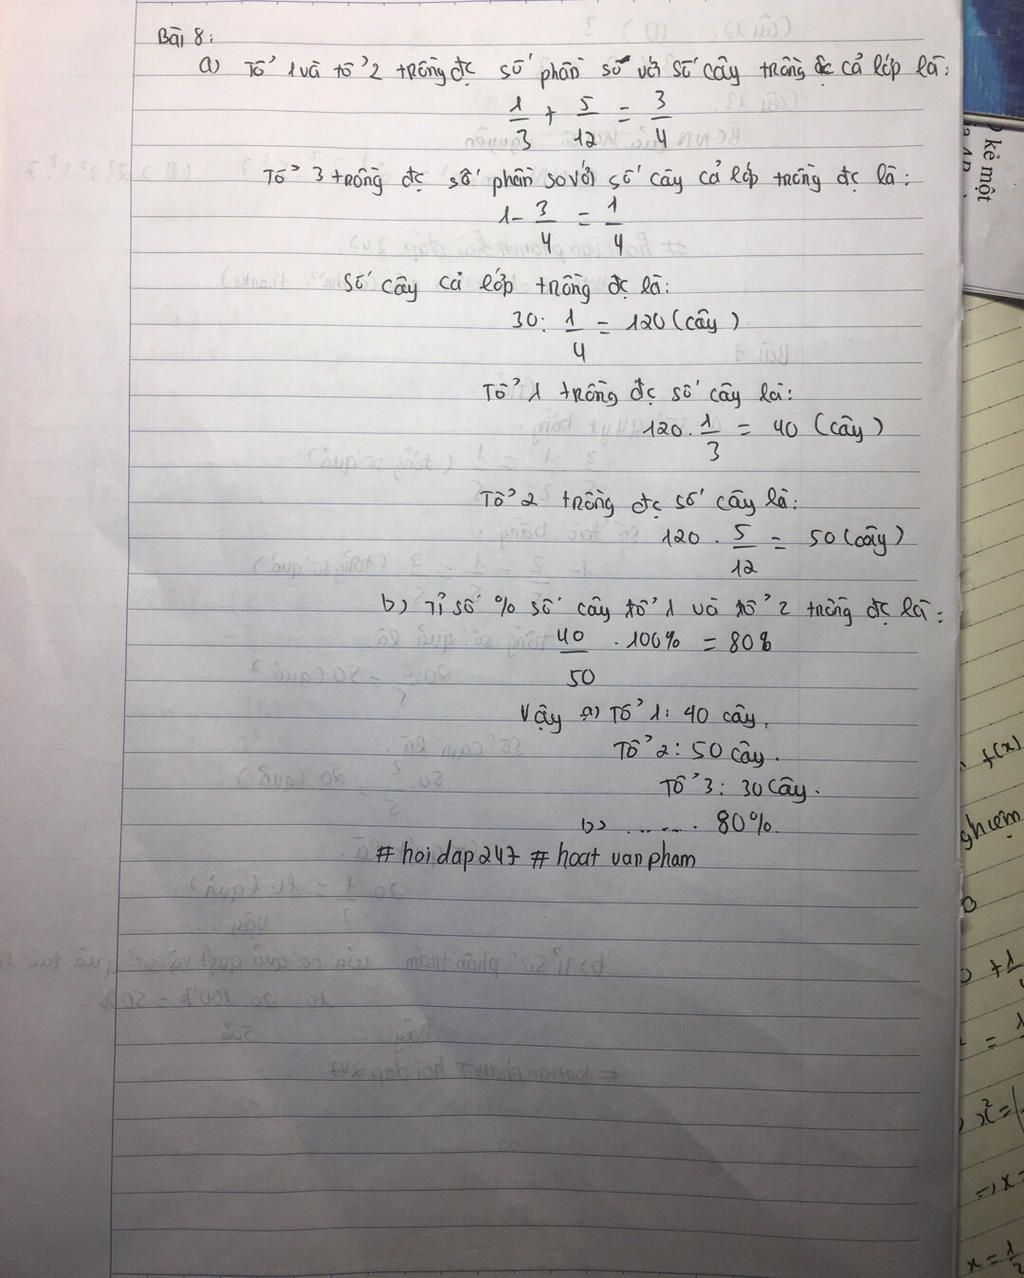 Bài 8:
a) Tổ 1 và tổ 2 trồng đc số phần số với số cây trồng đc cả lớp là:
1/3 + 5/12 = 3/4
Tổ 3 trồng đc số phần so với số cây cả lớp trồng đc là:
1 - 3/4 = 1/4
Số cây cả lớp trồng đc là:
30 : 1/4 = 120 (cây)
Tổ 1 trồng đc số cây là:
120 . 1/3 = 40 (cây)
Tổ 2 trồng đc số cây là:
120 . 5/12 = 50 (cây)
b) Tỉ số % số cây tổ 1 và tổ 2 trồng đc là:
40/50 . 100% = 80%
Vậy a) Tổ 1: 40 cây.
Tổ 2: 50 cây.
Tổ 3: 30 cây.
b) ....... 80%.
# hoidap247 # hoat vanpham
kẻ một
f(x)
nghiệm
x =